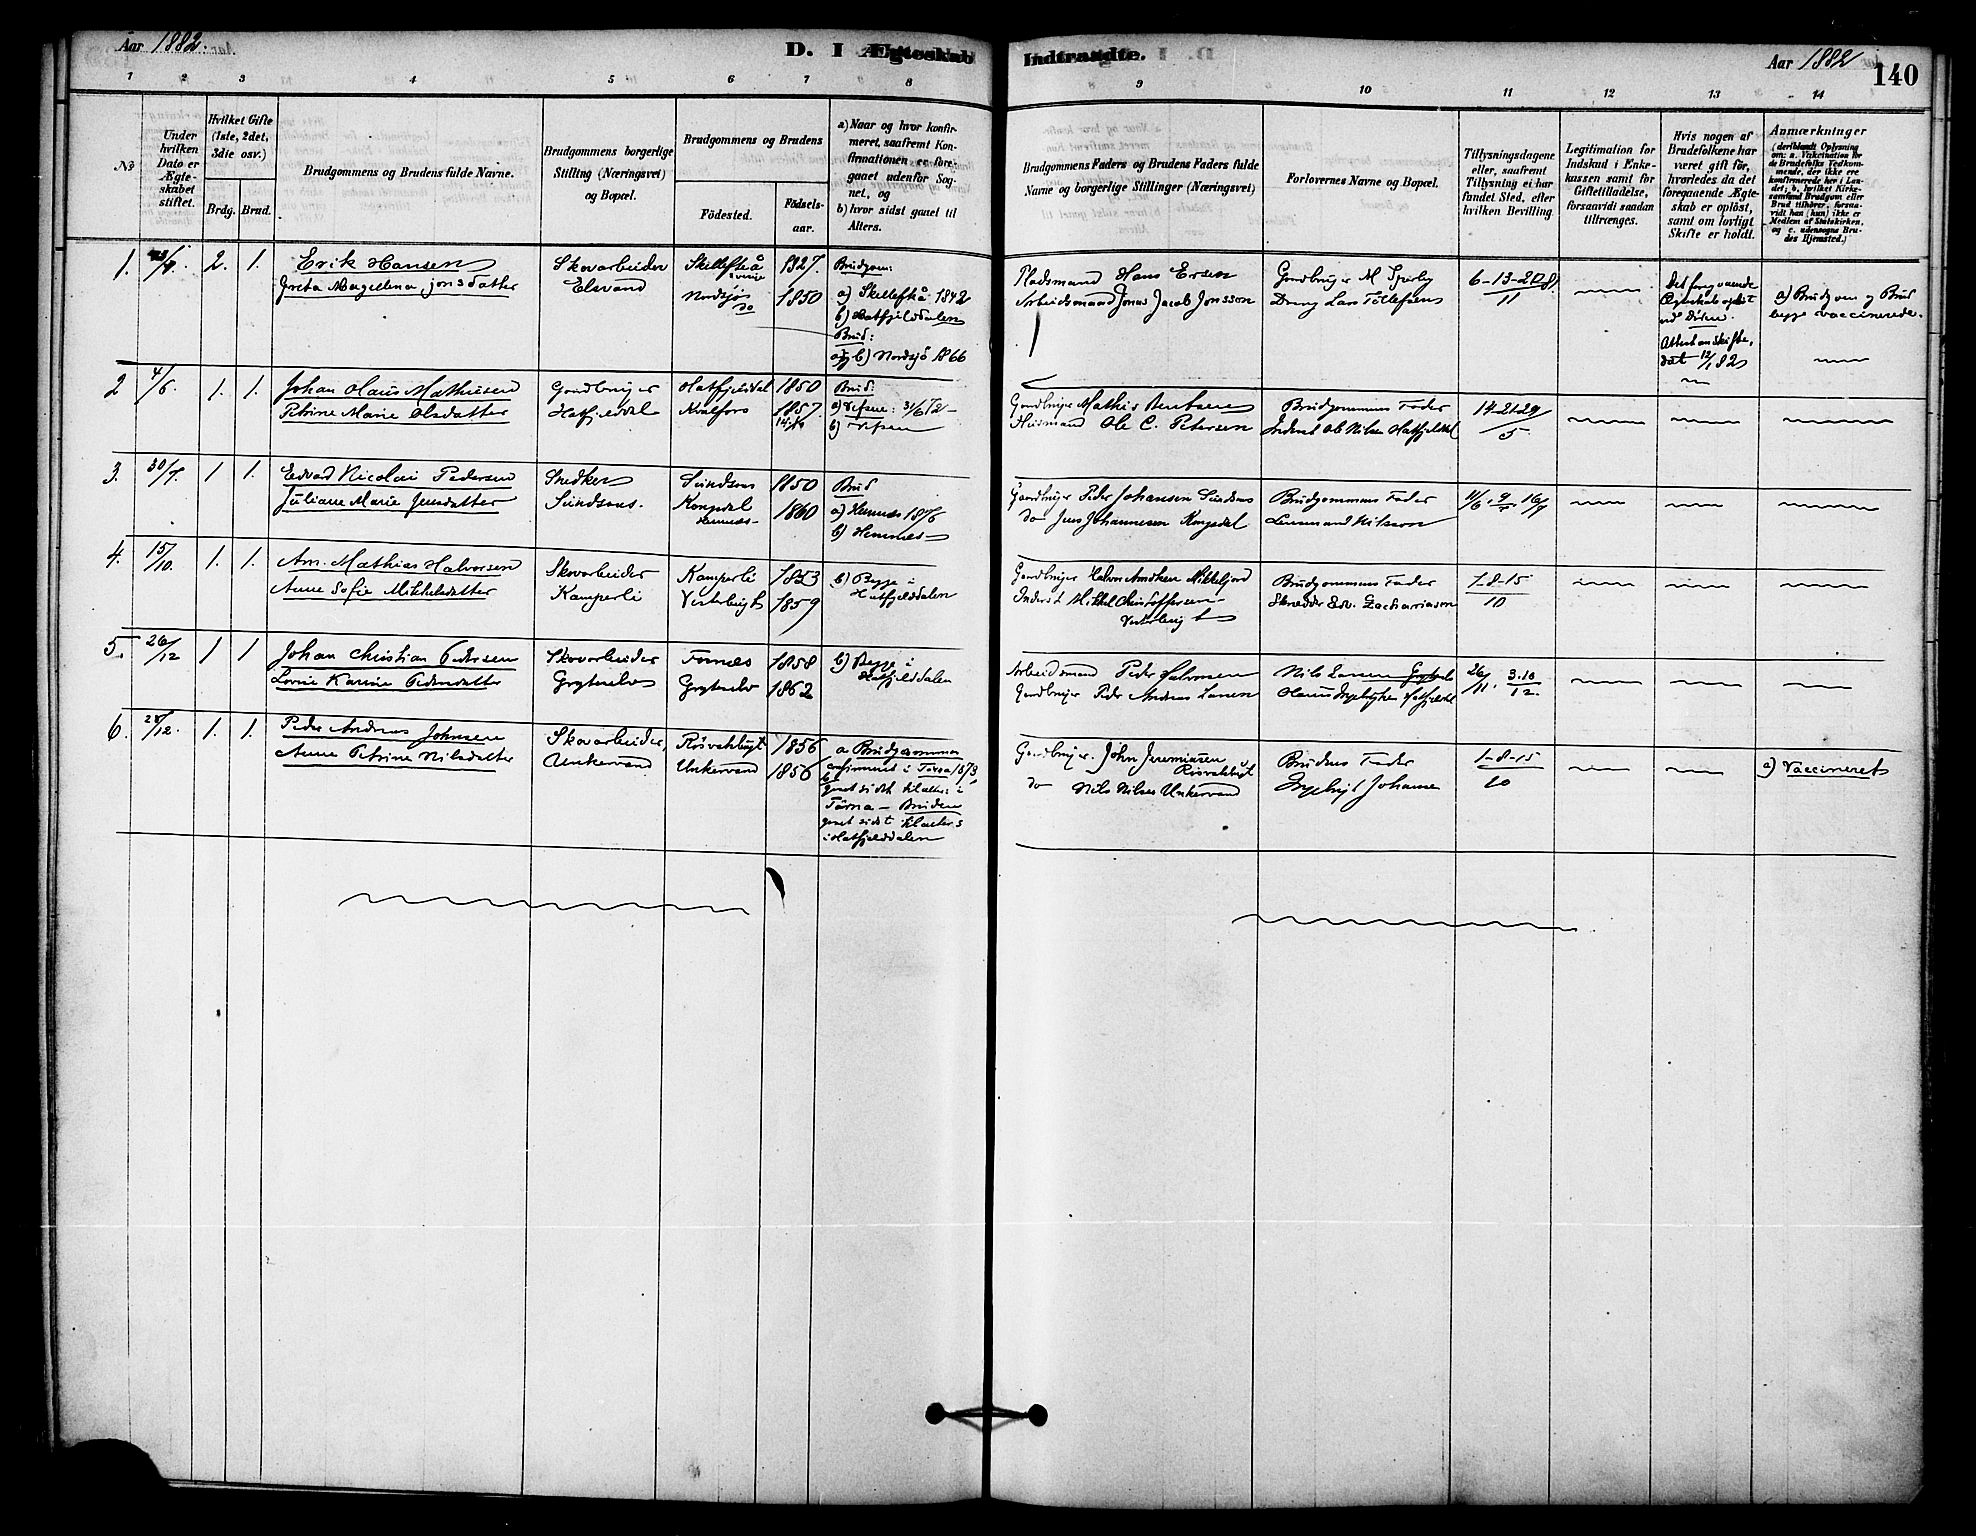 Aar 1882.
D. I Ægteskab Indtraadte.
Aar 1882
140
1 2 3 4 5 6 7 8 9 10 11 12 13 14
No
Under hvilken Dato er Ægteskabet stiftet.
Hvilket Gifte (1ste, 2det, 3die osv.)
Brdg. Brud.
Brudgommens og Brudens fulde Navne.
Brudgommens borgerlige Stilling (Næringsvei) og Bopæl.
Brudgommens og Brudens
Födested. Födselsaar.
a) Naar og hvor konfirmeret, saafremt Konfirmationen er foregaaet udenfor Sognet, og
b) hvor sidst gaaet til Alters.
Brudgommens Faders og Brudens Faders fulde Navne og borgerlige Stillinger (Næringsvei)
Forlovernes Navne og Bopæl.
Tillysningsdagene eller, saafremt Tillysning ei har fundet Sted, efter hvilken Bevilling.
Legitimation for Indskud i Enkekassen samt for Giftetilladelse, forsaavidt saadan tiltrænges.
Hvis nogen af Brudefolkene har været gift för, hvorledes da det foregaaende Ægteskab er oplöst, samt om lovligt Skifte er holdt.
Anmærkninger
(deriblandt Oplysning om: a. Vakcination for de Brudefolks Vedkommende, der ikke ere konfirmerede her i Landet; b. hvilket Kirkesamfund Brudgom eller Brud tilhörer, forsaavidt han (hun) ikke er Medlem af Statskirken, og c. udensogns Brudes Hjemsted.)
1. 2. 1.
Erik Hansen
Greta Magellena Jonsdatter
Skovarbeider
Elsvand
Skellefteå 1827.
Nordsjö do 1850
Brudgom:
a) Skellefteå 1842
b) Hatfjelddalen
Brud:
a) b) Nordsjö 1866
Pladsmand Hans Ersen
Arbeidsmand Jonas Jacob Jonsson
Gaardbruger M
Dreng Lars Tollefsen
6-13-20/11
Det foregaaende
Ægteskab oplöst
ved Döden.
Attest om skifte,
dat 12/1 82
a) Brudgom og Brud
begge vaccinerede.
2 4/6 1. 1.
Johan Olaus Mathisen
Petrine Marie Olsdatter
Gaardbruger
Hatfjelddal
Hatfjelddal 1850
Kvalfors 1857
Brud:
a) Vefsen: 3/6 72
b) Vefsen
Gaardbruger Mathis Bentsen
Husmand Ole C. Petersen
Brudgommens Fader
Inderst Ole Nilsen Hatfjelddal
14-21-29/5
3. 30/7. 1 1.
Edvard Nicolai Pedersen
Juliane Marie Jensdatter
Snedker
Sundsnes.
Sundsnes 1850
Kongsdal Hemnes 1860
Brud
a) Hemnes 1876
b) Hemnes
Gaardbruger Peder Johansen Sundsnes
do Jens Johannesen Kongsdal
Brudgommens Fader
Nilsson
9/7 16/7
4. 15/10. 1. 1.
Arn. Mathias Halvorsen
Anne Sofie Mikkelsdatter
Skovarbeider
Kamperli
Kamperli 1853
Vesterbugt 1859
b) Begge i
Hatfjelddalen
Gaardbruger Halvor Arntsen Mikkeljord
Inderst Mikkel Christoffersen
Vesterbugt
Brudgommens Fader
Skredder Edv. Zachariasen
1-8-15
10
5. 26/12 1 1
Johan Christian Pedersen
Lovise Karine Pedersdatter
Skovarbeider
Grytenelv
Fornes 1858
Grytenelv 1862
b) Begge i
Hatfjelddalen
Arbeidsmand Peder Halvorsen
Gaardbruger Peder Andreas Larsen
Nils Larsen
Olaus Ingebrigtsen Hatfjelddal
26/11. 3.10/12.
6. 28/12. 1. 1.
Peder Andreas Johnsen
Anne Petrine Nilsdatter
Skovarbeider,
Unkervand
Rösvatsbugt 1856
Unkervand 1856
a. Brudgommen
confirmeret i Tärna 1873
b. gaaet sidst til alters i
Tärna - Bruden
gaaet sidst til alters
i Hatfjelddalen
Gaardbruger. John Jeremiasen
Rösvatsbugt
do Nils Nilsen Unkervand
Brudens Fader
Ingebrigt Johansen
1-8-15
10
a) Vaccineret